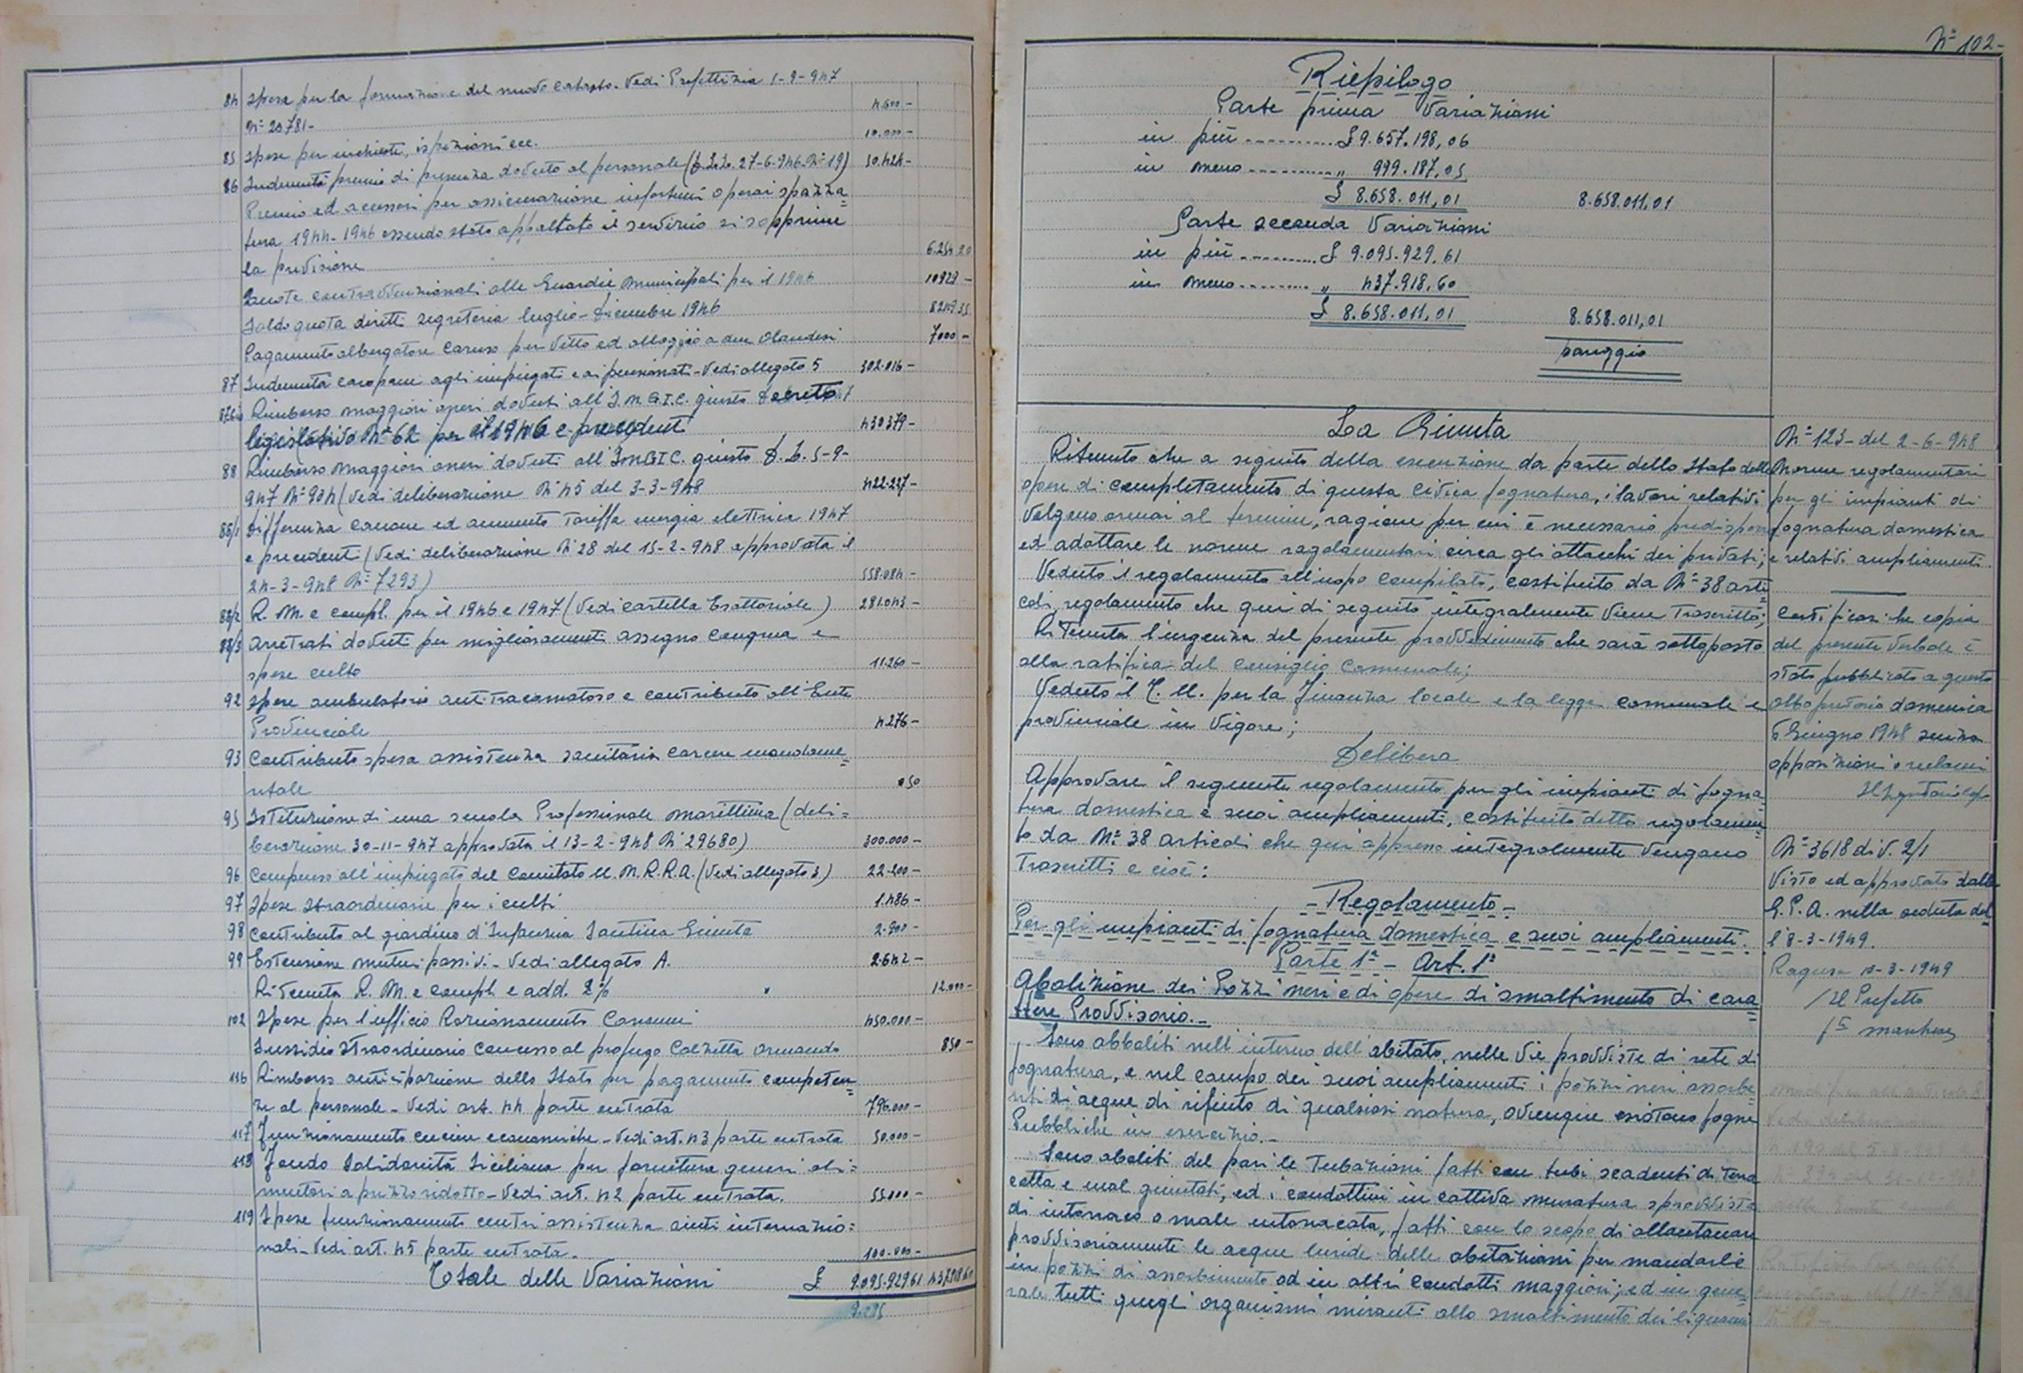 84 Spese per la formazione del nuovo catasto. Vedi Prefettizia 1-9-947
N° 20781- 4600-
85 Spese per inchieste, ispezioni ecc. 10.000-
86 Indennità premio di presenza dovuto al personale (D.L.L. 27-6-946 N° 19) 30.424-
Premio ed accessori per assicurazione infortuni operai spazza=
tura 1944-1946 essendo stato appaltato il servizio si sopprime
la previsione
Quote contravvenzionali alle Guardie Municipali per il 1946 10929-
Saldo quota diritti segreteria luglio-Dicembre 1946
Pagamento albergatore Caruso per vitto ed alloggio a due Olandesi 7000-
87 Indennità caropane agli impiegati e ai pensionati-Vedi allegato 5 302.016-
87bis Rimborso maggiori oneri dovuti all'I.N.G.I.C. giusto Decreto
legislativo N° 62 per il 1946 e precedenti 430379-
88 Rimborso maggiori oneri dovuti all'INGIC. giusto D.L. 5-9-
947 N° 904 (Vedi deliberazione N° 45 del 3-3-948 422.227-
88/1 Differenza canone ed aumento Tariffa energia elettrica 1947
e precedenti (Vedi deliberazione N° 28 del 15-2-948 approvata il
24-3-948 N° 7293) 558.084-
88/2 R.M. e compl. per il 1946 e 1947 (Vedi cartella Esattoriale) 281.043-
88/3 Arretrati dovuti per miglioramenti assegno congrua e
spese culto 11.260-
92 Spese ambulatorio antitracomatoso e contributo all'Ente
Provinciale 4276-
93 Contributo spesa assistenza sanitaria carcere mandame=
ntale
95 Istituzione di una scuola Professionale Marittima (deli=
berazione 30-11-947 approvata il 13-2-948 N° 29680) 300.000-
96 Compenso all'impiegato del Comitato U.N.R.R.A. (Vedi allegato 3)
97 Spese straordinarie per i culti 1.486-
98 Contributo al giardino d'Infanzia Santina Giunta 2.900-
99 Estensione mutui passivi-Vedi allegato A. 2.642-
Ritenuta R.M. e compl. e add. 2% 12.000-
102 Spese per l'ufficio Razionamento Consumi 450.000-
Sussidio straordinario concesso al profugo Armando 850-
116 Rimborso anticipazione dello Stato per pagamento competen=
ze al personale-Vedi art. 44 parte entrata 796.000-
117 Funzionamento cucine economiche-Vedi art. 43 parte entrata 50.000-
118 Fondo Solidarietà Siciliana per fornitura generi ali=
mentari a prezzo ridotto-Vedi art. 42 parte entrata. 55.000-
119 Spese funzionamento centri assistenza aiuti internazio=
nali-Vedi art. 45 parte entrata. 100.000-
Totale delle Variazioni £ 9.095.929,61 437.918,60
N° 102-
Riepilogo
Parte prima Variazioni
in più ........... £ 9.657.198,06
in meno ........... " 999.187,05
£ 8.658.011,01 8.658.011,01
Parte seconda Variazioni
in più .......... £ 9.095.929,61
in meno .......... " 437.918,60
£ 8.658.011,01 8.658.011,01
pareggio
La Giunta
Ritenuto che a seguito della esecuzione da parte dello Stato delle
opere di completamento di questa civica fognatura, i lavori relativi
volgono ormai al termine, ragione per cui è necessario predisporre
ed adottare le norme regolamentari circa gli attacchi dei privati;
Veduto il regolamento all'uopo compilato, costituito da N° 38 arti=
coli, regolamento che qui di seguito integralmente viene Trascritto;
Ritenuta l'urgenza del presente provvedimento che sarà sottoposto
alla ratifica del Consiglio Comunale;
Veduto il T.U. per la Finanza locale e la legge comunale e
provinciale in vigore;
Delibera
Approvare il seguente regolamento per gli impianti di fogna=
tura domestica e suoi ampliamenti, costituito detto regolamen=
to da N° 38 articoli che qui appresso integralmente vengono
Trascritti e cioè:
-Regolamento-
Per gli impianti di fognatura domestica e suoi ampliamenti.
Parte 1ª - Art. 1°
Abolizione dei Pozzi neri e di opere di smaltimento di cara=
ttere Provvisorio.-
Sono abboliti nell'interno dell'abitato, nelle vie provviste di rete di
fognatura, e nel campo dei suoi ampliamenti i pozzi neri assorbe=
nti di acque di rifiuto di qualsiasi natura, ovunque esistano fogne
Pubbliche in esercizio.-
Sono aboliti del pari le Tubazioni fatti con tubi scadenti di terra
cotta e mal giuntati, ed i condottini in cattiva muratura sprovvista
di intonaco o male intonacata, fatti con lo scopo di allontanare
provvisoriamente le acque luride delle abitazioni per mandarle
in pozzi di assorbimento od in altri condotti maggiori; ed in gene=
rale tutti quegli organismi miranti allo smaltimento dei liquami
N° 123-del 2-6-948
Norme regolamentari
per gli impianti di
fognatura domestica
e relativi ampliamenti.
Certificasi che copia
del presente verbale è
stato pubblicato a questo
albo pretorio domenica
6 Giugno 1948 senza
opposizioni o reclami
N° 3618 div. 2/1
Visto ed approvato dalla
G.P.A. nella seduta del
18-3-1949.
Ragusa
Il Prefetto